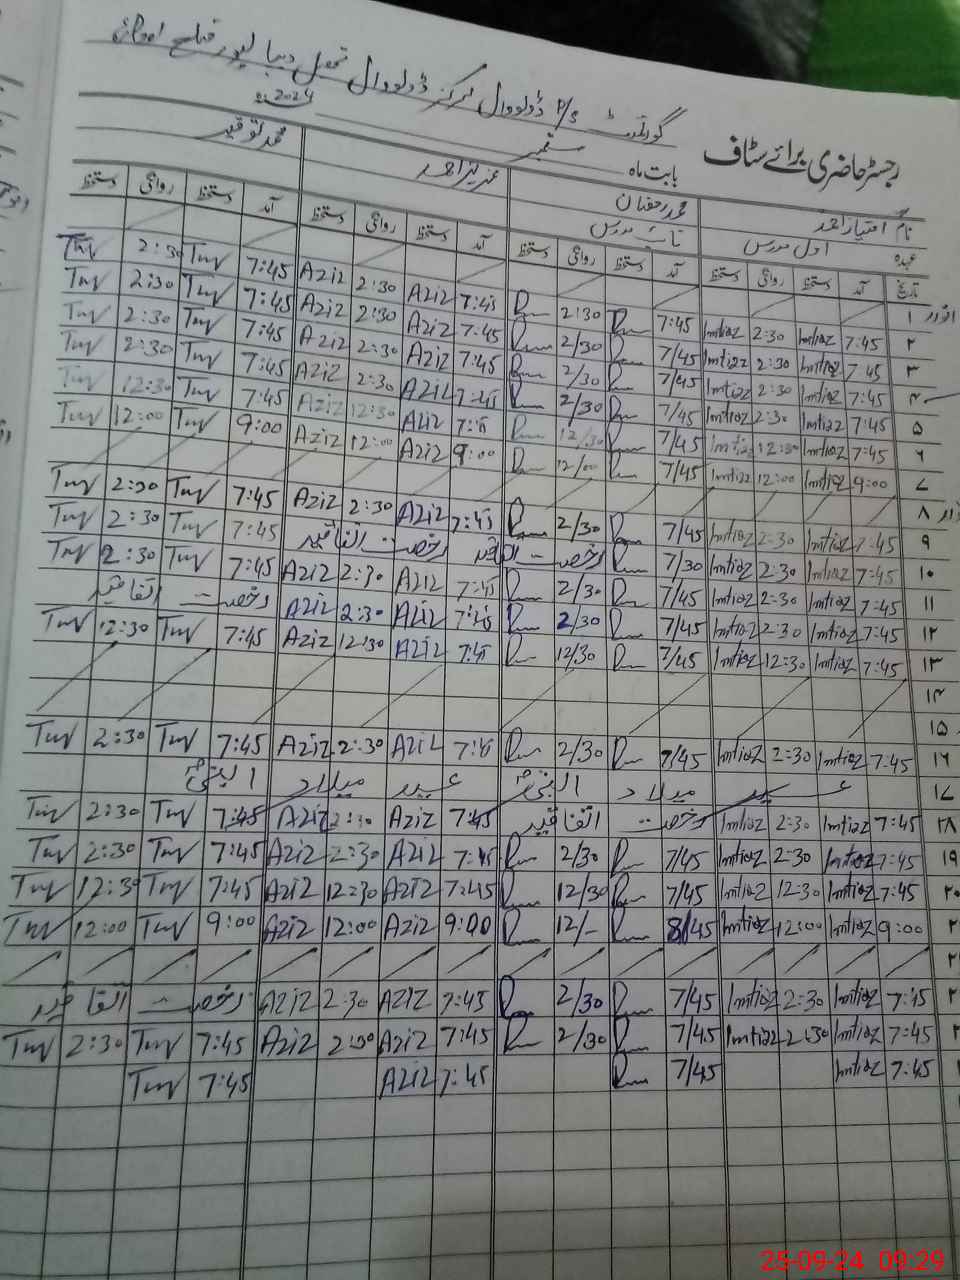 گورنمنٹ P/S ڈولووال مرکز ڈولووال تحصیل دیپالپور ضلع اوکاڑہ
رجسٹر حاضری برائے سٹاف بابت ماہ ستمبر 2024ء
نام امتیاز احمد محمد رمضان عزیز احمد محمد توقیر
عہدہ اول مدرس نائب مدرس
تاریخ آمد دستخط روانگی دستخط آمد دستخط روانگی دستخط آمد دستخط روانگی دستخط آمد دستخط روانگی دستخط
۱ اتوار
۲ 7:45 Imtiaz 2:30 Imtiaz 7:45 2:30 7:45 Aziz 2:30 Aziz 7:45 2:30
۳ 7:45 Imtiaz 2:30 Imtiaz 7/45 2/30 7:45 Aziz 2:30 Aziz 7:45 2:30
۴ 7:45 Imtiaz 2:30 Imtiaz 7/45 2/30 7:45 Aziz 2:30 Aziz 7:45 2:30
۵ 7:45 Imtiaz 2:30 Imtiaz 7/45 2/30 7:45 Aziz 2:30 Aziz 7:45 2:30
۶ 7:45 Imtiaz 12:30 Imtiaz 7/45 12/30 7:45 Aziz 12:30 Aziz 7:45 12:30
۷ 9:00 Imtiaz 12:00 Imtiaz 7/45 12/00 9:00 Aziz 12:00 Aziz 9:00 12:00
۸
۹ 7:45 Imtiaz 2:30 Imtiaz 7/45 2/30 7:45 Aziz 2:30 Aziz 7:45 2:30
۱۰ 7:45 Imtiaz 2:30 Imtiaz 7/30 رخصت اتفاقیہ رخصت اتفاقیہ 7:45 2:30
۱۱ 7:45 Imtiaz 2:30 Imtiaz 7/45 2/30 7:45 Aziz 2:30 Aziz 7:45 2:30
۱۲ 7:45 Imtiaz 2:30 Imtiaz 7/45 2/30 7:45 Aziz 2:30 Aziz رخصت اتفاقیہ
۱۳ 7:45 Imtiaz 12:30 Imtiaz 7/45 12/30 7:45 Aziz 12:30 Aziz 7:45 12:30
۱۴
۱۵
۱۶ 7:45 Imtiaz 2:30 Imtiaz 7/45 2/30 7:45 Aziz 2:30 Aziz 7:45 2:30
۱۷ عید میلاد النبیؐ عید میلاد النبیؐ
۱۸ 7:45 Imtiaz 2:30 Imtiaz رخصت اتفاقیہ 7:45 Aziz 2:30 Aziz 7:45 2:30
۱۹ 7:45 Imtiaz 2:30 Imtiaz 7/45 2/30 7:45 Aziz 2:30 Aziz 7:45 2:30
۲۰ 7:45 Imtiaz 12:30 Imtiaz 7/45 12/30 7:45 Aziz 12:30 Aziz 7:45 12:30
۲ 9:00 Imtiaz 12:00 Imtiaz 8/45 12/- 9:00 Aziz 12:00 Aziz 9:00 12:00
۲
۲ 7:45 Imtiaz 2:30 Imtiaz 7/45 2/30 7:45 Aziz 2:30 Aziz رخصت اتفاقیہ
۲ 7:45 Imtiaz 2:30 Imtiaz 7/45 2/30 7:45 Aziz 2:30 Aziz 7:45 2:30
7:45 Imtiaz 7/45 7:45 Aziz 7:45
25-09-24 09:29